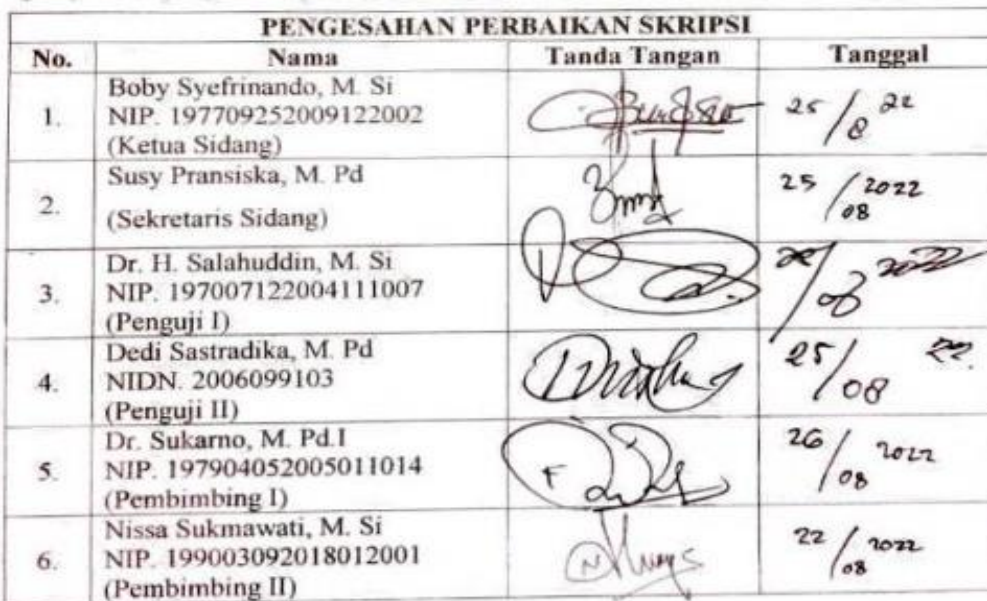 PENGESAHAN PERBAIKAN SKRIPSI
No. Nama Tanda Tangan Tanggal
1. Boby Syefrinando, M. Si
NIP. 197709252009122002
(Ketua Sidang)
25/8 22
2. Susy Pransiska, M. Pd
(Sekretaris Sidang)
25/08 2022
3. Dr. H. Salahuddin, M. Si
NIP. 197007122004111007
(Penguji I)
2022
4. Dedi Sastradika, M. Pd
NIDN. 2006099103
(Penguji II)
25/08 22
5. Dr. Sukarno, M. Pd.I
NIP. 197904052005011014
(Pembimbing I)
26/08 2022
6. Nissa Sukmawati, M. Si
NIP. 199003092018012001
(Pembimbing II)
22/08 2022